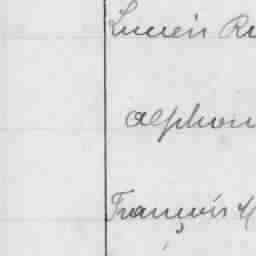 Lucien Ru
Alphon
François H